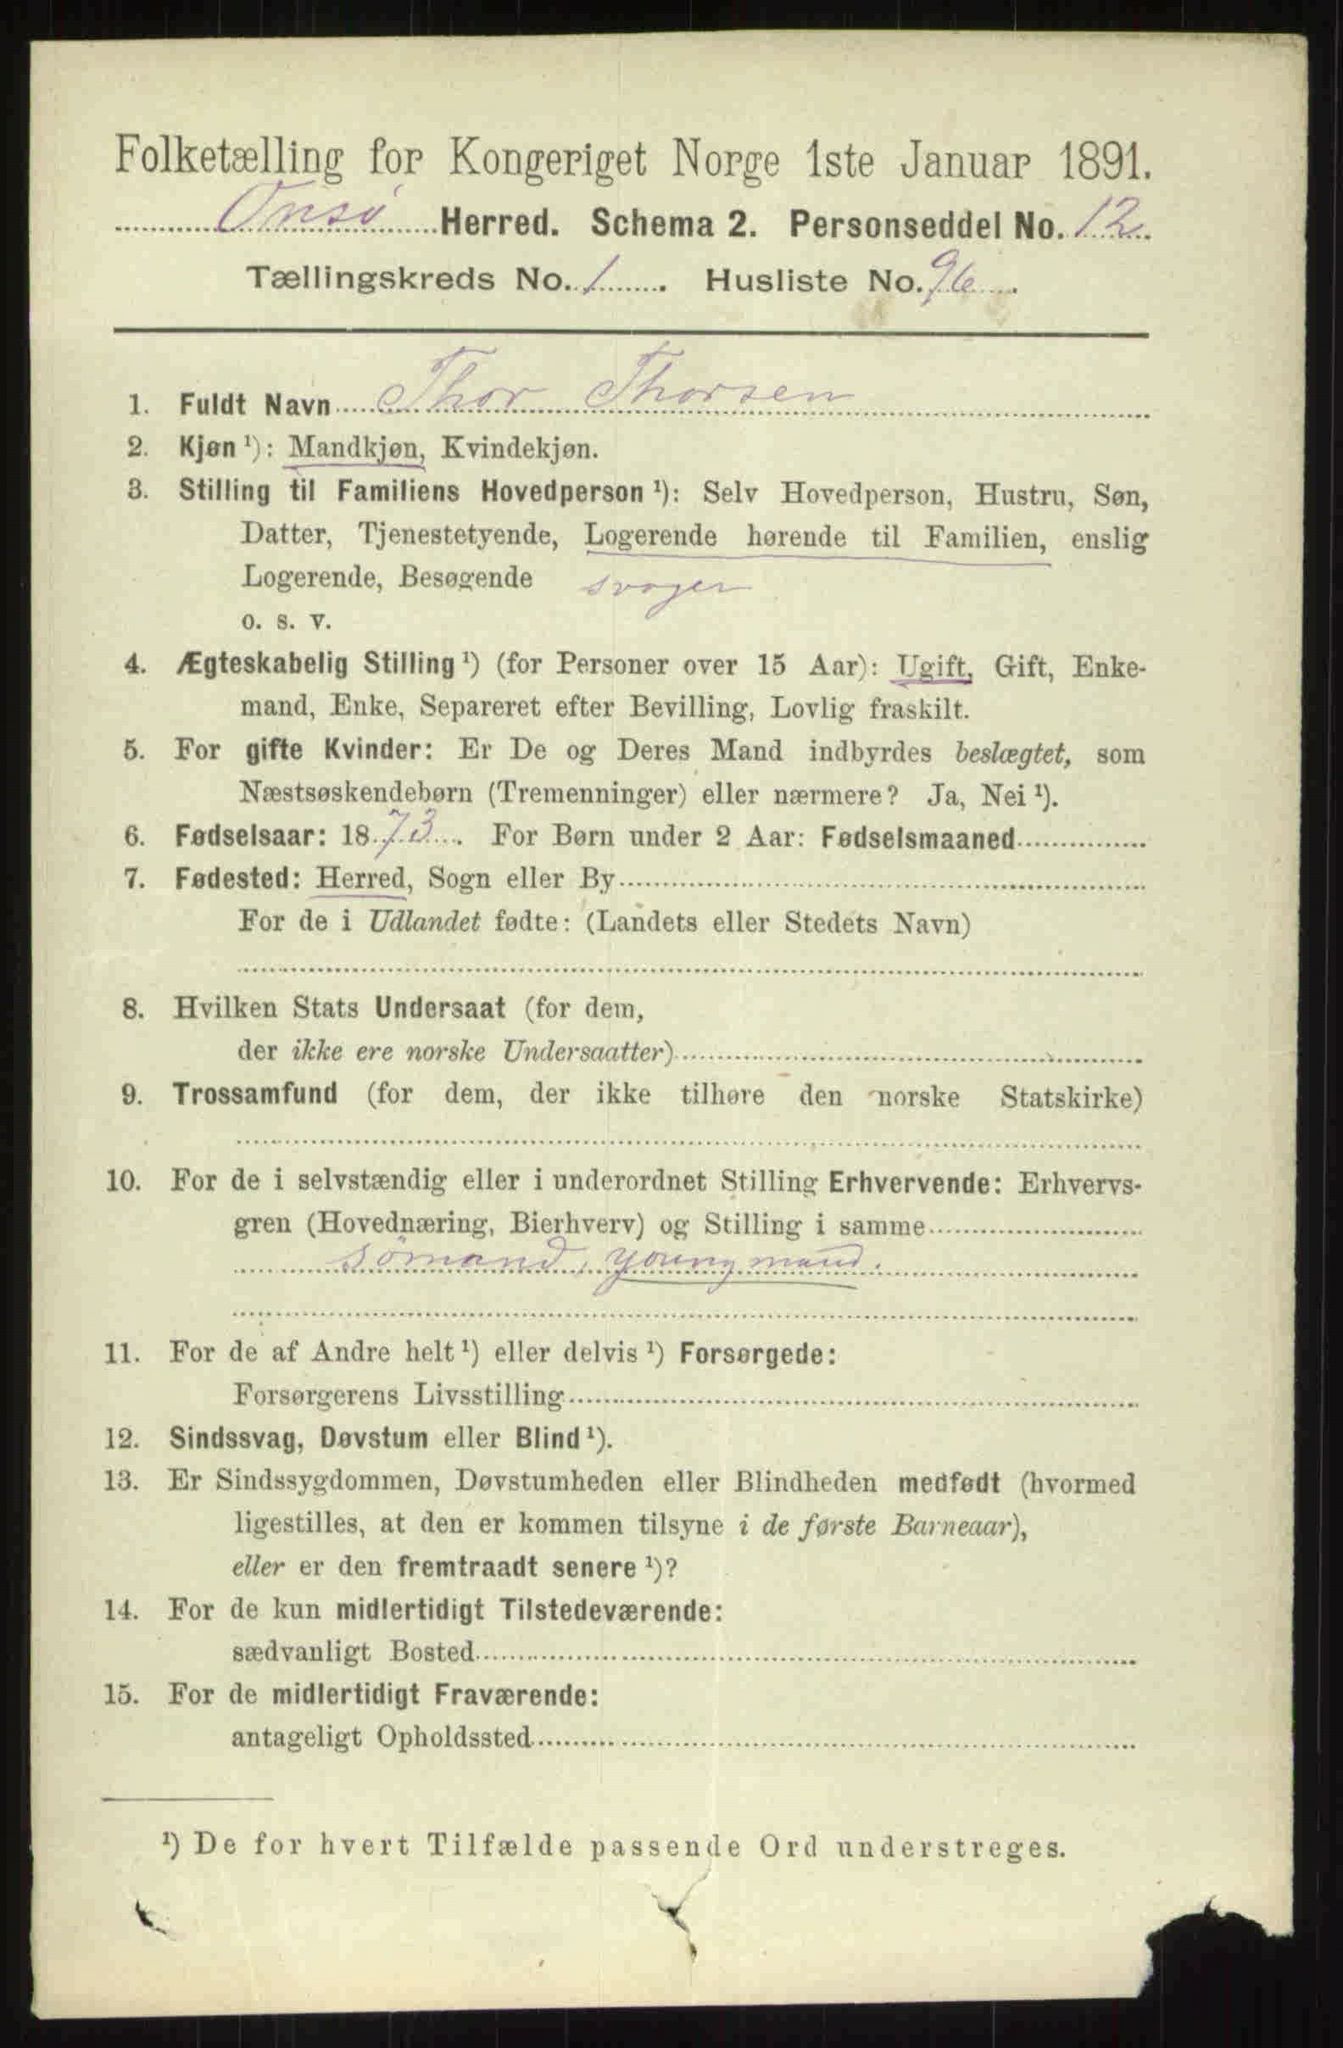 Folketælling for Kongeriget Norge 1ste Januar 1891.
Onsø Herred. Schema 2. Personseddel No. 12
Tællingskreds No. 1. Husliste No. 96.
1. Fuldt Navn Thor Thorsen
2. Kjøn ¹): Mandkjøn, Kvindekjøn.
3. Stilling til Familiens Hovedperson ¹): Selv Hovedperson, Hustru, Søn,
Datter, Tjenestetyende, Logerende hørende til Familien, enslig
Logerende, Besøgende svoger
o. s. v.
4. Ægteskabelig Stilling ¹) (for Personer over 15 Aar): Ugift, Gift, Enke-
mand, Enke, Separeret efter Bevilling, Lovlig fraskilt.
5. For gifte Kvinder: Er De og Deres Mand indbyrdes beslægtet, som
Næstsøskendebørn (Tremenninger) eller nærmere? Ja, Nei ¹).
6. Fødselsaar: 1873. For Børn under 2 Aar: Fødselsmaaned
7. Fødested: Herred, Sogn eller By
For de i Udlandet fødte: (Landets eller Stedets Navn)
8. Hvilken Stats Undersaat (for dem,
der ikke ere norske Undersaatter)
9. Trossamfund (for dem, der ikke tilhøre den norske Statskirke)
10. For de i selvstændig eller i underordnet Stilling Erhvervende: Erhvervs-
gren (Hovednæring, Bierhverv) og Stilling i samme
sömand, youngmand.
11. For de af Andre helt ¹) eller delvis ¹) Forsørgede:
Forsørgerens Livsstilling
12. Sindssvag, Døvstum eller Blind ¹).
13. Er Sindssygdommen, Døvstumheden eller Blindheden medfødt (hvormed
ligestilles, at den er kommen tilsyne i de første Barneaar),
eller er den fremtraadt senere ¹)?
14. For de kun midlertidigt Tilstedeværende:
sædvanligt Bosted
15. For de midlertidigt Fraværende:
antageligt Opholdssted
¹) De for hvert Tilfælde passende Ord understreges.